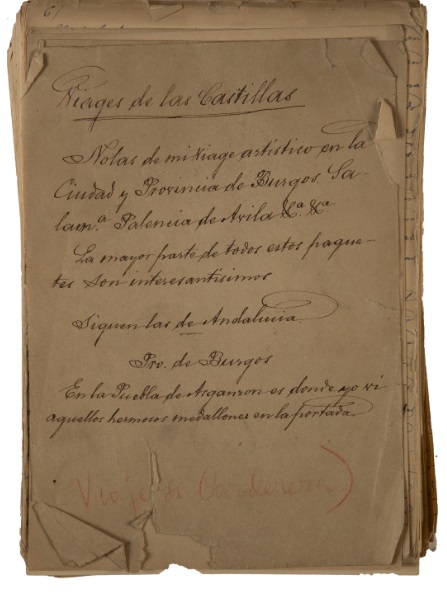 Viages de las Castillas
Notas de mi viage artistico en la
Ciudad y Provincia de Burgos. Sa-
lam.ª Palencia de Avila &ª. &ª
La mayor parte de todos estos paque-
tes son interesantisimos
Siguen las de Andalucia.
Pro. de Burgos
En la Puebla de Arganzon es donde yo vi
aquellos hermosos medallones en la portada.
Viaje de Carderera)